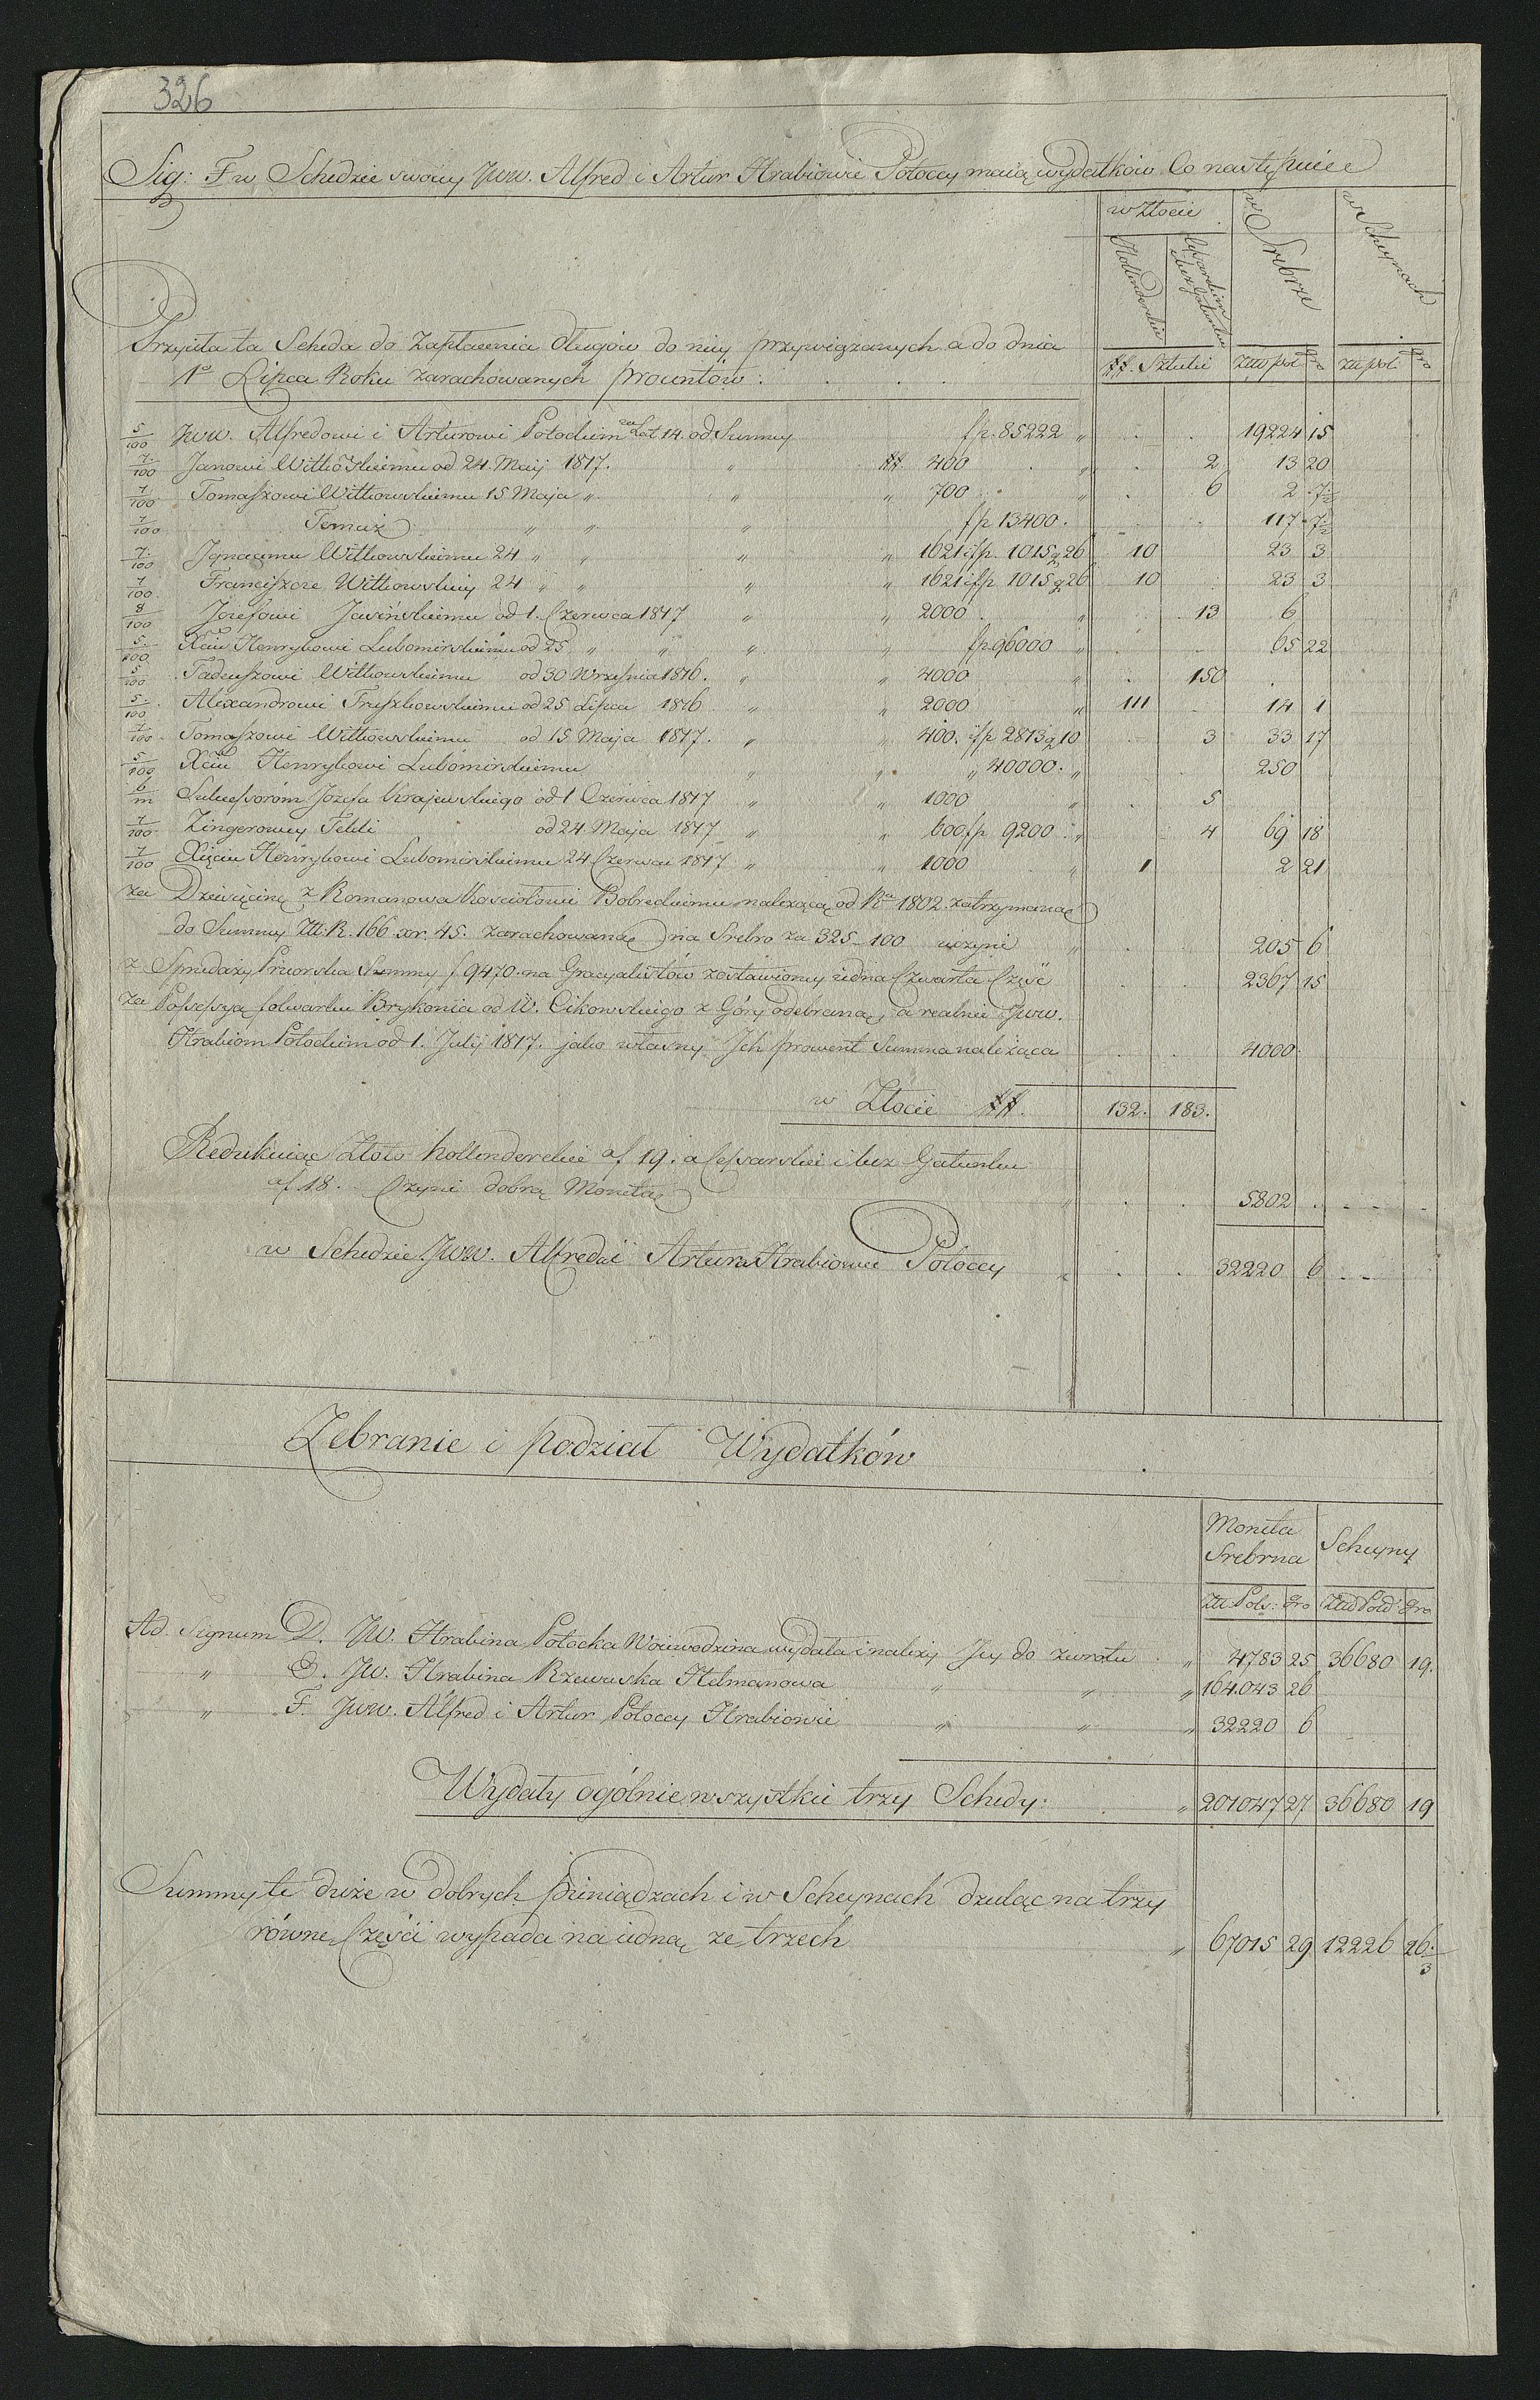 326
Sig: F w Schedzie swoiey Jww. Alfred i Artur Hrabiowie Potoccy maią wydatków Co następuiee
w Złocie w Srebrze w Scheynach
Hollenderskim bez Gatunku
## Sztuki Złłpol gro Złł pol gro
Przyięła ta Scheda do Zapłacenia długów do niey przywiązanych a do dnia
1o Lipca Roku zarachowanych prowentów:
5/100 Jww. Alfredowi i Arturowi Potockim za Lat 14. od Summy fp. 85222 " 19224 15
7/100 Janowi Witkowskiemu od 24. Maij 1817. " ## 400 " 2 13 20
7/100 Tomaszowi Witkowskiemu 15 Maja " " " 700 " 6 2 7½
7/100 Temuż " " " fp 13400. 117 7½
7/100 Ignacemu Witkowskiemu 24 " " " " 162 i fp. 1015 g 26 10 23 3
7/100 Franciszce Witkowskiey 24 " " " " 162 i fp 1015 g 26 10 23 3
8/100 Jozefowi Jasińskiemu od 1. Czerwca 1817 " " 2000 " 13 6
5/100 Xciu Henrykowi Lubomirskiemu od 25 " " " " fp 96000 " 65 22
5/100 Tadeuszowi Witkowskiemu od 30 Września 1816. " " 4000 " 150
5/100 Alexandrowi Truszkowskiemu od 25 Lipca 1816 " " 2000 " 111 14 1
7/100 Tomaszowi Witkowskiemu od 15 Maja 1817. " " 400. i fp 2813 g 10 3 33 17
5/100 Xciu Henrykowi Lubomirskiemu " " " 40000. " 250
6/m Sukcessoróm Józefa Krajewskiego od 1 Czerwca 1817 " " 1000 " 5
7/100 Zingerowey Tekli od 24 Maja 1817 " " 600 fp 9200 " 4 69 18
7/100 Xięciu Henrykowi Lubomirskiemu 24 Czerwca 1817 " " 1000 " 1 2 21
za Dziesięcinę z Romanowa Kościołowi Bobreckiemu należącą od Ru 1802. zatrzymanąe
do Summy Złł. R. 166 xr. 45. zarachowanąe na Srebro za 325-100 uczyni " 205 6
z Sprzedaży Przeworska Summy f 9470. na Gracyalistów zostawioney iedna Czwarta Część 2367 15
za Possesyą folwarku Brykonia od W. Cikowskiego z Góry odebraną, a realnie Jww.
Hrabiom Potockim od 1. Julij 1817. jako własny Jch prowent Summa należąca 4000
w Złocie ##. 132. 183.
Redukuiąc Złoto hollenderskie af 19. a Cesarskie i bez Gatunku
af 18. Czyni dobrą Monetąe " 5802
w Schedzie Jww. Alfreda i Artura Hrabiowie Potoccy " 32220 6
Zebranie i podział Wydatków
Moneta Srebrna Scheyny
Złł Pols: gro Złłd Pols: gro
Ad. Signum D. JW. Hrabina Potocka Woiewodzina wydała i należy Jey do zwrotu " 4783 25 36680 19.
" E. JW. Hrabina Rzewuska Hetmanowa " " " 164.043 26
" F. Jww. Alfred i Artur Potoccy Hrabiowie " " " 32220 6
Wydały ogólnie wszystkie trzy Schedy: " 201047 27 36680 19
Summy te dwie w dobrych pieniądzach i w Scheynach dzieląc na trzy
równe Części wypada na iedną ze trzech " 67015 29 12226 26⅓